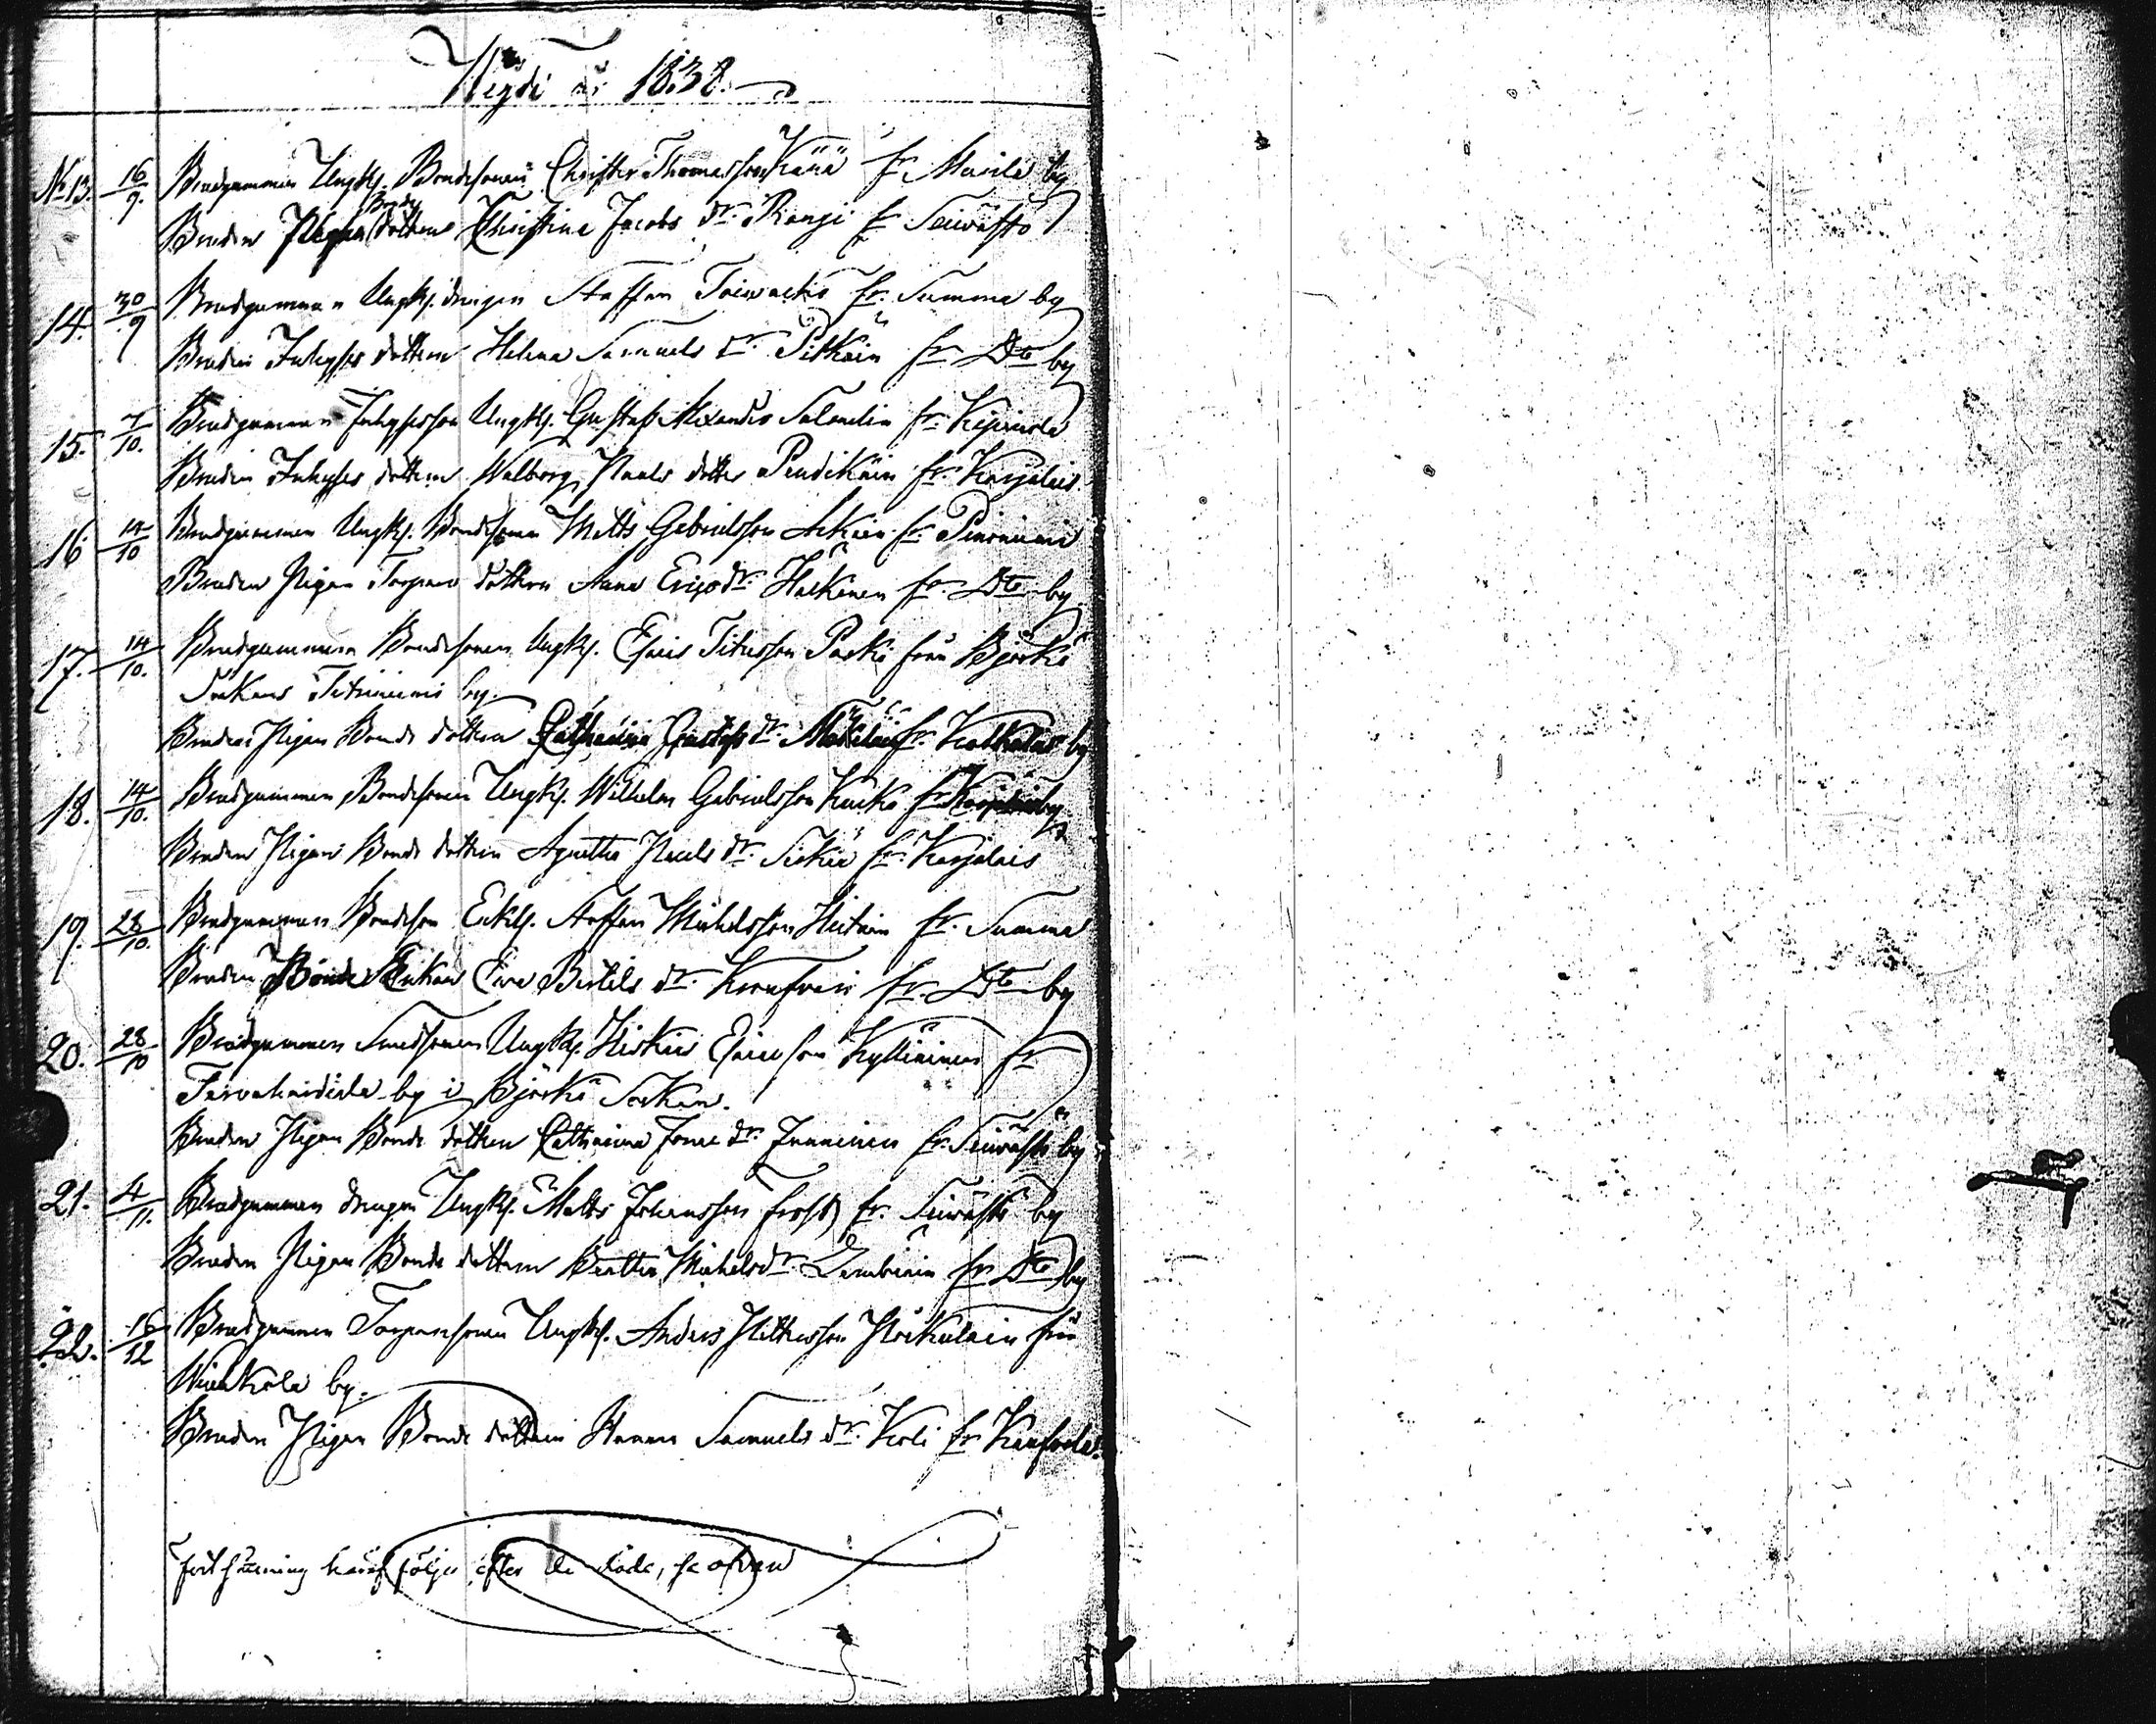 Wigde år 1838.
No 13. 16/9. Brudgummen Ungk. Bondesonen Christer Thomasson Känä fr. Maisila by
Bruden Pigan Bonde dottren Christina Jacobs dr. Ranji fr Seiwästö
14. 30/9 Brudgumman Ungk. drengen Staffan Toiwacko fr. Summa by
Bruden Inhyses dottren Helena Samuels dr. Pitkäin fr Dto by
15. 7/10. Brudgumman Inhysesson Ungk. Gustaf Alexander Salendin fr.
Bruden Inhyses dottren Walborg Pauls dotter Pendikäin fr. Karjalais.
16 14/10 Brudgumman Ungk. Bondesonen Matts Gabrielsson fr.
Bruden Pigan Torpare dottren Anna Ericsdr. Hackanen fr. Dto by
17. 14/10. Brudgumman Bondesonen Ungk. Esaias Titusson Packi från Björkö
Sockens by.
Bruden Pigan Bonde dottren Catharina Gustafs dr. fr. by
18. 14/10. Brudgumman Bondesonen Ungk. Wilhelm Gabrielsson Kucko fr by
Bruden Pigan Bonde dottren Agnetha Pauls dr. fr. Karjalais
19. 28/10. Brudgumman Bondeson Enkl. Staffan Michelsson fr. Summa
Bruden Bonde Enkan Ewa Bertils dr. fr. Dto by
20. 28/10 Brudgumman Ungk. Hiskias Esaiasson Kylliäinen fr
by i Björkö Socken.
Bruden Pigan Bonde dottren Catharina Jonae dr. Inninen fr. Seiwästö by
21. 4/11. Brudgumman drengen Ungk. Matts Johansson Frost fr. Seiwästö by
Bruden Pigan Bonde dottren Bertha Michelsdr. fr Dto by
22. 16/12 Brudgumman Torparesonen Ungk. Anders från
by.
Bruden Pigan Bonde dottren Hanna Samuels dr. Koli fr
Fortsättning häraf följer efter de döde, se ofvan